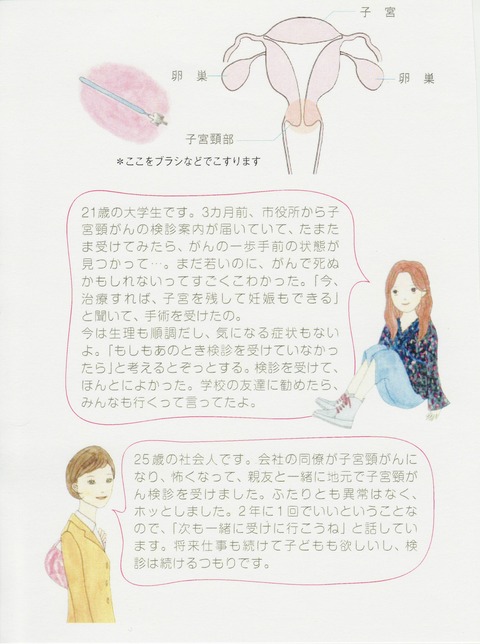 子 宮
卵 巣
卵 巣
子宮頸部
＊ここをブラシなどでこすります
21歳の大学生です。3カ月前、市役所から子
宮頸がんの検診案内が届いていて、たまた
ま受けてみたら、がんの一歩手前の状態が
見つかって…。まだ若いのに、がんで死ぬ
かもしれないってすごくこわかった。「今、
治療すれば、子宮を残して妊娠もできる」
と聞いて、手術を受けたの。
今は生理も順調だし、気になる症状もない
よ。「もしもあのとき検診を受けていなかっ
たら」と考えるとぞっとする。検診を受けて、
ほんとによかった。学校の友達に勧めたら、
みんなも行くって言ってたよ。
25歳の社会人です。会社の同僚が子宮頸がんに
なり、怖くなって、親友と一緒に地元で子宮頸
がん検診を受けました。ふたりとも異常はなく、
ホッとしました。2年に1回でいいということな
ので、「次も一緒に受けに行こうね」と話してい
ます。将来仕事も続けて子どもも欲しいし、検
診は続けるつもりです。